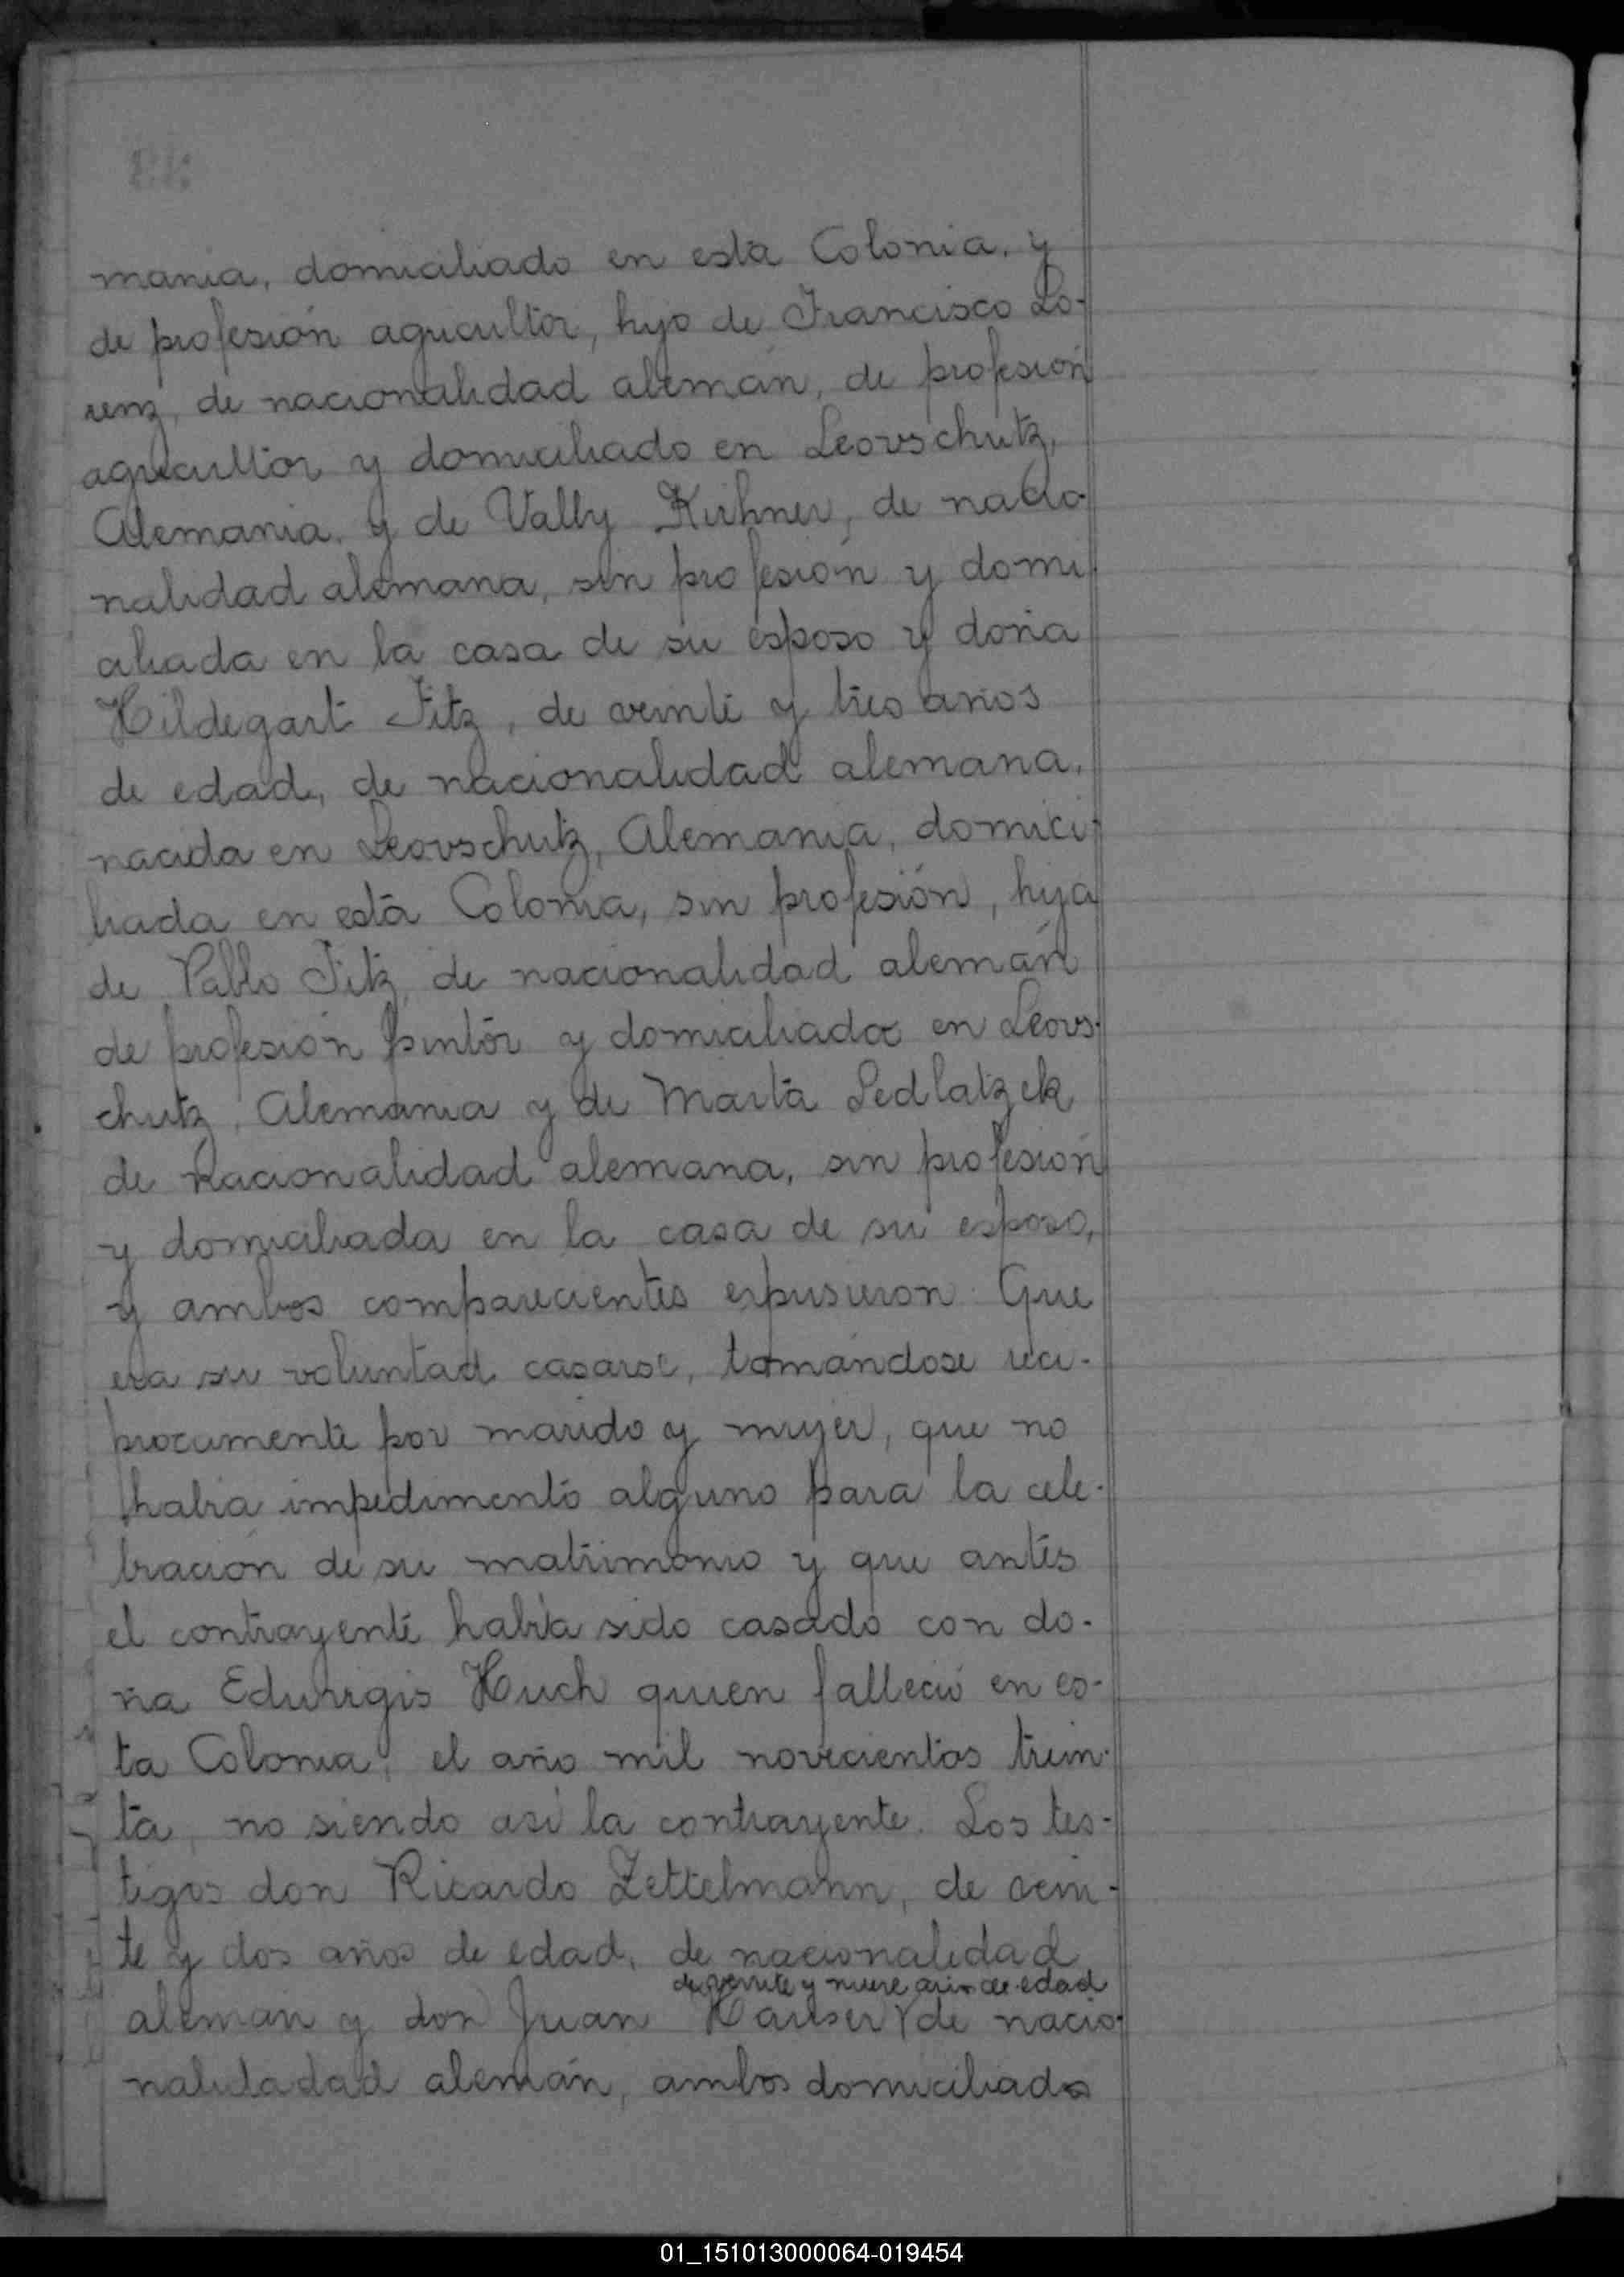 mania, domiciliado en esta Colonia, y
de profesión agricultor, hijo de Francisco Lo-
renz, de nacionalidad alemán, de profesión
agricultor y domiciliado en Leovschutz,
Alemania, y de Vally Kirhner, de nacio-
nalidad alemana, sin profesión y domi-
ciliada en la casa de su esposo y doña
Hildegart Fitz, de veinte y tres años
de edad, de nacionalidad alemana,
nacida en Leovschutz, Alemania, domici-
liada en esta Colonia, sin profesión, hija
de Pablo Fitz, de nacionalidad alemán
de profesión pintor y domiciliado en Leovs-
chutz, Alemania y de Marta Sedlatzek
de nacionalidad alemana, sin profesión
y domiciliada en la casa de su esposo,
y ambos comparecientes expusieron: Que
era su voluntad casarse, tomándose reci-
procamente por marido y mujer, que no
habia impedimento alguno para la cele-
bración de su matrimonio y que antes
el contrayente habia sido casado con do-
ña Eduvigis Huch quien falleció en es-
ta Colonia, el año mil novecientos trein-
ta, no siendo asi la contrayente. Los tes-
tigos don Ricardo Zettelmann, de vein-
te y dos años de edad, de nacionalidad
de veinte y nueve años de edad
alemán y don Juan Hauser de nacio-
nalidadad alemán, ambos domiciliados
01_151013000064-019454